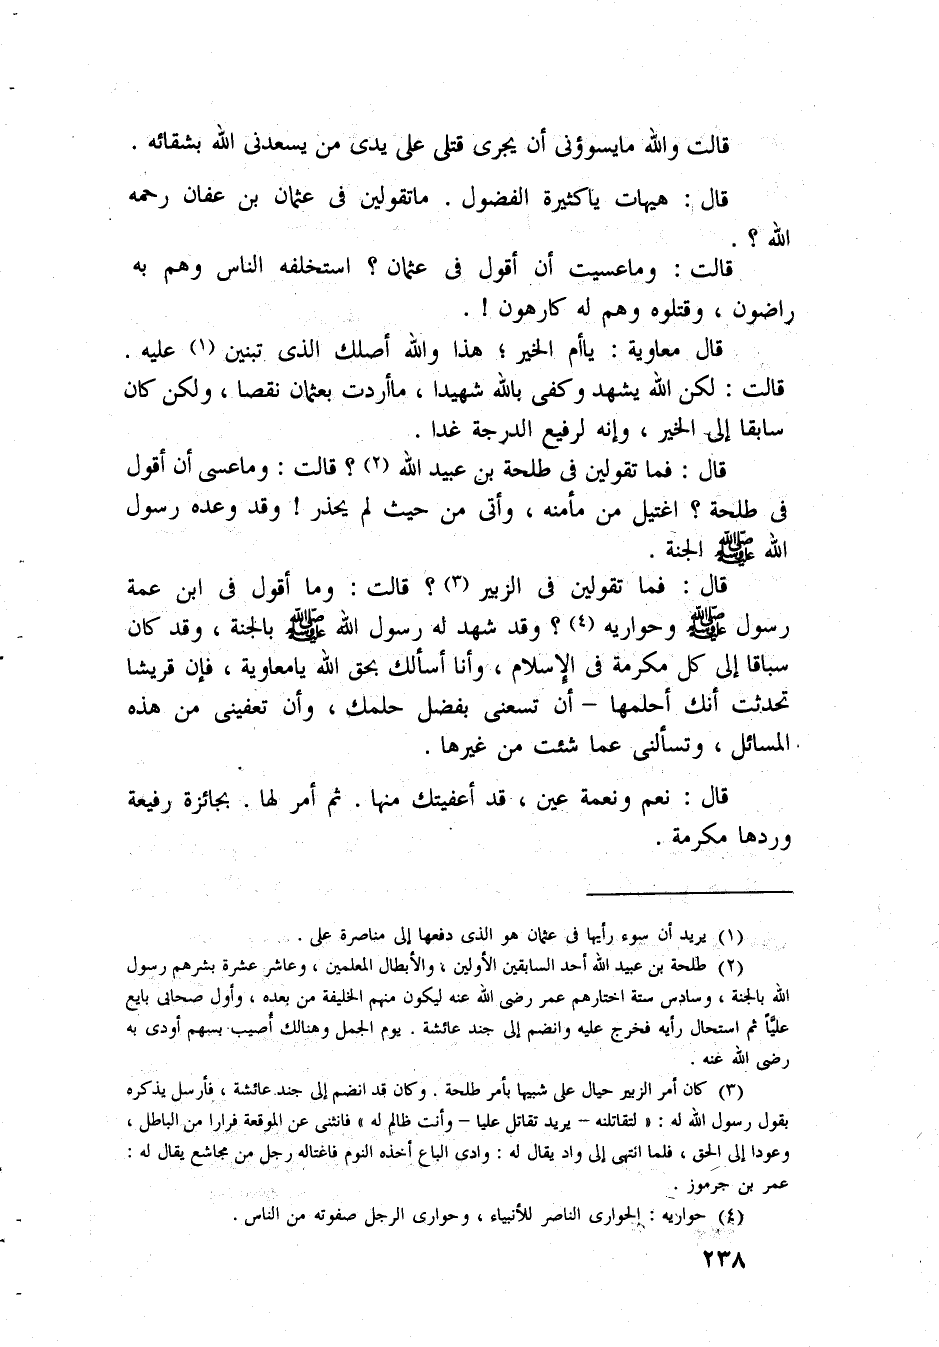 قالت والله مايسوؤنى أن يجرى قتلى على يدى من يسعدنى الله بشقائه .
قال : هيهات ياكثيرة الفضول . ماتقولين فى عثمان بن عفان رحمه
الله ؟ .
قالت : وماعسيت أن أقول فى عثمان ؟ استخلفه الناس وهم به
راضون ، وقتلوه وهم له كارهون ! .
قال معاوية : ياأم الخير ؛ هذا والله أصلك الذى تبنين (١) عليه .
قالت : لكن الله يشهد وكفى بالله شهيدا ، ماأردت بعثمان نقصا ، ولكن كان
سابقا إلى الخير ، وإنه لرفيع الدرجة غدا .
قال : فما تقولين فى طلحة بن عبيد الله (٢) ؟ قالت : وماعسى أن أقول
فى طلحة ؟ اغتيل من مأمنه ، وأتى من حيث لم يحذر ! وقد وعده رسول
الله ﷺ الجنة .
قال : فما تقولين فى الزبير (٣) ؟ قالت : وما أقول فى ابن عمة
رسول ﷺ وحواريه (٤) ؟ وقد شهد له رسول الله ﷺ بالجنة ، وقد كان
سباقا إلى كل مكرمة فى الإسلام ، وأنا أسألك بحق الله يامعاوية ، فإن قريشا
تحدثت أنك أحلمها – أن تسعنى بفضل حلمك ، وأن تعفينى من هذه
المسائل ، وتسألنى عما شئت من غيرها .
قال : نعم ونعمة عين ، قد أعفيتك منها . ثم أمر لها . بجائزة رفيعة
وردها مكرمة .
(١) يريد أن سوء رأيها فى عثمان هو الذى دفعها إلى مناصرة على .
(٢) طلحة بن عبيد الله أحد السابقين الأولين ، والأبطال المعلمين ، وعاشر عشرة بشرهم رسول
الله بالجنة ، وسادس ستة اختارهم عمر رضى الله عنه ليكون منهم الخليفة من بعده ، وأول صحابى بايع
عليًّا ثم استحال رأيه فخرج عليه وانضم إلى جند عائشة . يوم الجمل وهنالك أُصيب بسهم أودى به
رضى الله عنه .
(٣) كان أمر الزبير حيال على شبيها بأمر طلحة . وكان قد انضم إلى جند عائشة ، فأرسل يذكره
بقول رسول الله له : « لتقاتلنه – يريد تقاتل عليا – وأنت ظالم له » فانثنى عن الموقعة فرارا من الباطل ،
وعودا إلى الحق ، فلما انتهى إلى واد يقال له : وادى الباع أخذه النوم فاغتاله رجل من مجاشع يقال له :
عمر بن جرموز .
(٤) حواريه : الحوارى الناصر للأنبياء ، وحوارى الرجل صفوته من الناس .
٢٣٨